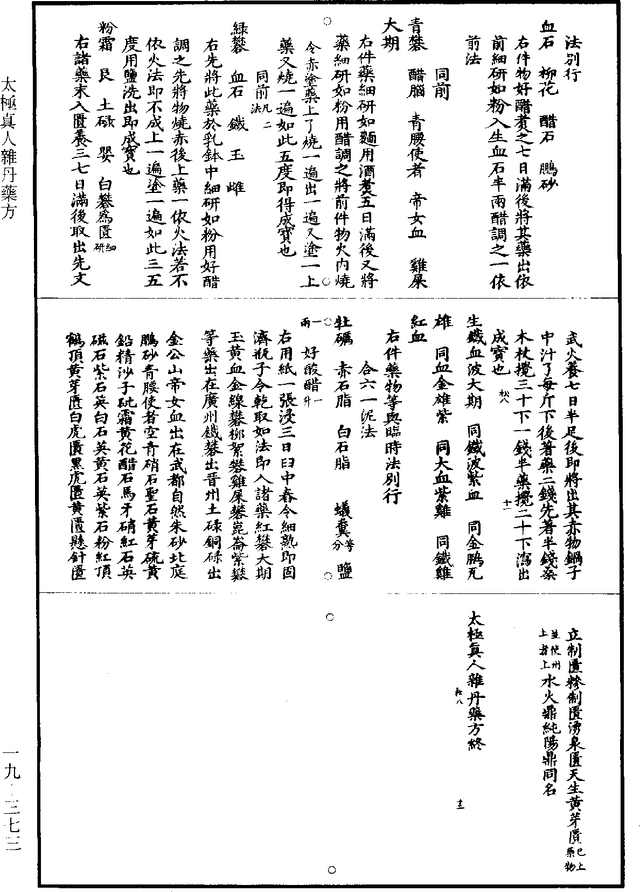 太極真人雜丹藥方
一九·三七三
法別行
血石　柳花　醋石　鵬砂
右件物好醋煮之七日滿後將其藥出依
前細研如粉入生血石半兩醋調之一依
前法
同前
青礬　醋腦　青腰使者　帝女血　雞屎
大期
右件藥細研如麵用酒煮五日滿後又將
藥細研如粉用醋調之將前件物火內燒
令赤塗藥上了燒一遍出一遍又塗一上
藥又燒一遍如此五度即得成寶也
同前凡二法
綠礬　血石　鐵　玉　雌
右先將此藥於乳鉢中細研如粉用好醋
調之先將物燒赤後上藥一依火法若不
依火法即不成上一遍塗一遍如此三五
度用鹽洗出即成寶也
粉霜　艮　土碌　嬰　白礬為匱細研
右諸藥末入匱養三七日滿後取出先文
武火養七日半足後即將出其赤物鍋子
中汁了每斤下後著藥二錢先著半錢桑
木杖攪三十下一錢半藥攪二十下瀉出
成寶也
松八
十二
生鐵血波大期　同鐵波紫血　同金鵬瓦
雄　同血金雄紫　同大血紫雞　同鐵雞
紅血
右件藥物等與臨時法別行
合六一泥法
牡礪　赤石脂　白石脂　蟻糞等分　鹽
一兩　好酸醋一升
右用紙一張浸三日臼中舂令細熟即固
濟瓶子令乾取如法即入諸藥紅礬大期
玉黃血金線礬柳絮礬雞屎礬崑崙紫礬
等藥出在廣州鐵礬出晉州土碌銅碌出
金公山帝女血出在武都自然朱砂北庭
鵬砂青腰使者空青硝石聖石黃芽硫黃
鉛精沙子砒霜黃花醋石馬牙硝紅石英
磁石紫石英白石英黃石英紫石粉紅頂
鶴頂黃芽匱白虎匱黑虎匱黃匱懸針匱
立制匱糝制匱湧泉匱天生黃芽匱已上藥物
並使州土者上水火鼎純陽鼎同名
太極真人雜丹藥方終
松八
十三